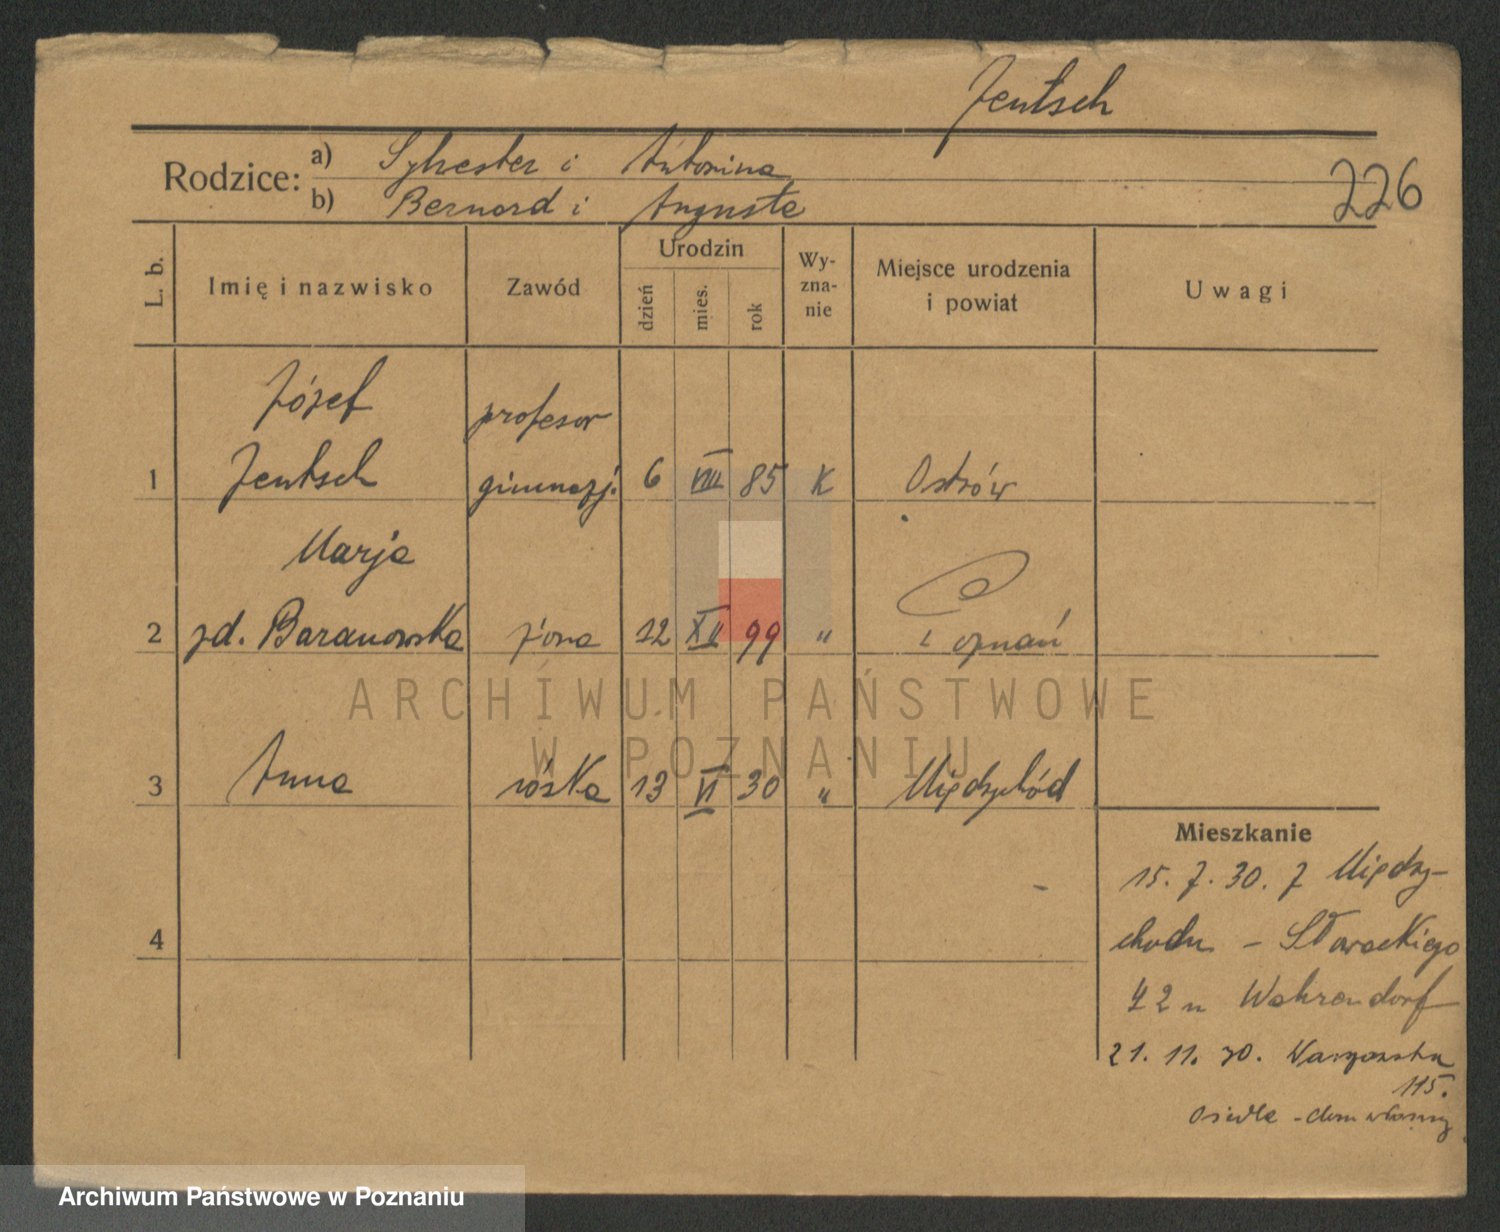 Jentsch
Rodzice:
a) Sylvester i Antonina
b) Bernard i Auguste
226
L. b.
Imię i nazwisko
Zawód
Urodzin
dzień
mies.
rok
Wy-
zna-
nie
Miejsce urodzenia
i powiat
Uwagi
Józef profesor
1 Jentsch gimnazj. 6 VIII 85 K Ostrów
Marja
2 zd. Baranowska żona 12 XII 99 " Poznań
ARCHIWUM PAŃSTWOWE
W POZNANIU
3 Anna córka 13 VI 30 " Międzychód
Mieszkanie
15. 7. 30. z Między-
chodu - Słowackiego
42 u Wahrendorf
4
21. 11. 30.
115.
Osiedle - dom własny
Archiwum Państwowe w Poznaniu